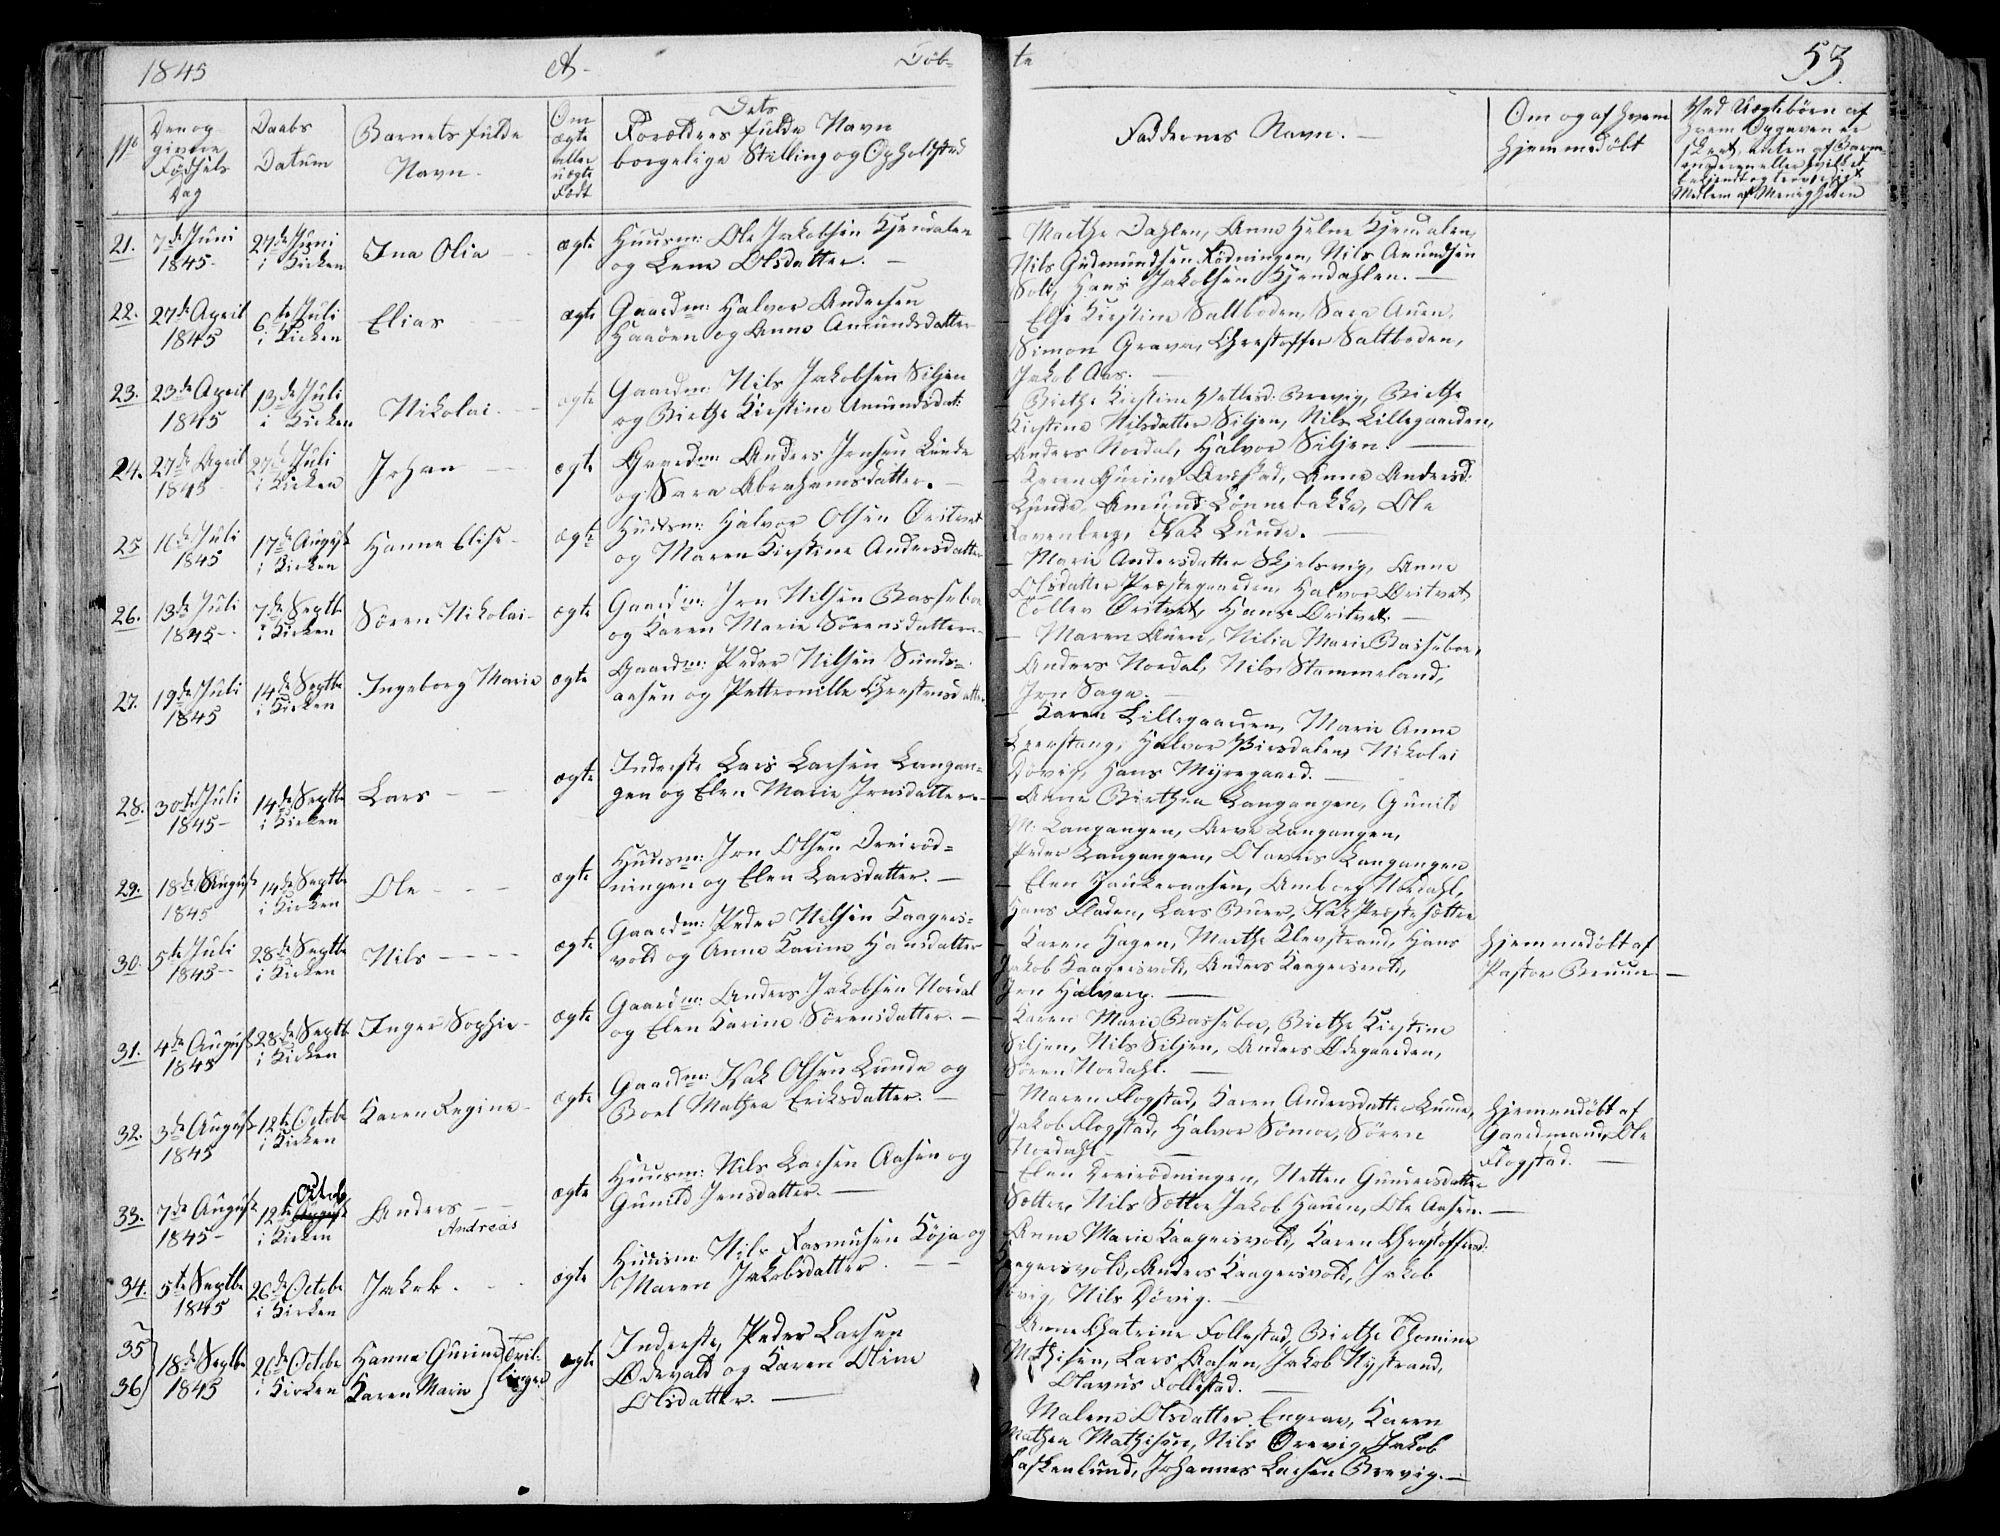 1845
A.
Døb-
te
53.
No
Den og givne Fødsels Dag
Daabs Datum
Barnets fulde Navn.
Om ægte eller uægte Født
Dets Forældres fulde Navn borgelige Stilling og Opholdsted
Faddernes Navn. —
Om og af hvem hjemmedøbt
Ved Uægtebørn af hvem Opgaven er skeet, enten af Barnemoderen eller hvilket bekiendt og troværdigt Medlem af Menigheden
21. 7de Juni 1845. 27de Juni i Kirken Ina Olia ægte
Huusm: Ole Jakobsen Kjendalen
og Lene Olsdatter. —
Marthe Dahlen, Anne Helne Kjendalen,
Nils Gudmundsen Rødningen, Nils Amundsen
Soli, Hans Jakobsen Kjendahlen. —
22. 27de April 1845 6te Juli i Kirken Elias ægte
Gaardm: Halvor Andersen
Haaøen og Anne Amundsdatter
Else Kirstine Saltboden, Sara Auen,
Simon Grava, Chrestoffer Saltboden,
Jakob Aas. —
23. 23de April 1845 13de Juli i Kirken Nikolai. ægte
Gaardm: Nils Jakobsen Siljen
og Birthe Kirstine Amundsdat:
Birthe Kirstine Vetlesd. Brevig, Birthe
Kirstine Nilsdatter Siljen, Nils Lillegaarden,
Anders Nordal, Halvor Siljen. —
24. 27de April 1845 27de Juli i Kirken Johan ægte
Gaardm: Anders Jensen Lunde
og Sara Abrahamsdatter. —
Karen Gurine Ørstad, Anne Andersd:
Lunde, Amund Lønnebakke, Ole
Ravenberg, Isak Lunde. —
25 16de Juli 1845 17de August i Kirken Hanne Elise. ægte
Huusm: Halvor Olsen Øritvet
og Maren Kirstine Andersdatter
Marie Andersdatter Skjelsvig, Anne
Olsdatter Præstegaarden, Halvor Øritvet
Tollev Øritvet, Hans Øritvet. —
26. 13de Juli 1845 7de Septbe i Kirken Søren Nikolai ægte
Gaardm: Jon Nilsen Basseboe
og Karen Marie Sørensdatter
Maren Auen, Nilia Marie Basseboe,
Anders Nordal, Nils Stammeland,
Jon Saga. —
27. 19de Juli 1845 14de Septbe i Kirken Ingeborg Marie ægte
Gaardm: Peder Nilsen Sunds-
aasen og Pettronille Chrestensdatter
Karen Lillegaarden, Marie Anne
Leerstang, Halvor Birsdalen, Nikolai
Døvig, Hans Myregaard. —
28. 30te Juli 1845 14de Septbe i Kirken Lars ægte
Inderste Lars Larsen Langan-
gen og Elen Marie Jensdatter
Anne Birthea Langangen, Gunild
M: Langangen, Arve Langangen,
Peder Langangen, Olavus Langangen
29. 18de August 1845 14de Septbe i Kirken Ole ægte
Huusm: Jon Olsen Dreirød-
ningen og Elen Larsdatter. —
Elen Haukeraasen, Amborg Nordahl,
Hans Fladen, Lars Buer, Isak Præstesætter
30. 5te Juli 1845 28de Septbe i Kirken Nils ægte
Gaardm: Peder Nilsen Kaagers-
vold og Anne Karine Hansdatter
Karen Hagen, Marthe Klevstrand, Hans
Jakob Kaagersvold, Anders Kaagersvold,
Jon Halvarp. —
Hjemmedøbt af
Pastor Bruun —
31. 4de August 1845 28de Septb i Kirken Inger Sophie ægte
Gaardm: Anders Jakobsen Nordal
og Elen Karine Sørensdatter. —
Karen Marie Basseboe, Birthe Kirstine
Siljen, Nils Siljen, Anders Ødegaarden,
Søren Nordahl. —
32. 3de August 1845 12te Octobe i Kirken Karen Regine ægte
Gaardm: Isak Olsen Lunde og
Boel Mathea Eriksdatter. —
Maren Flogstad, Karen Andersdatter Lunde,
Jakob Flogstad, Halvor Tømoe, Søren
Nordahl —
Hjemmedøbt af
Gaardmand Ole
Flogstad. —
33. 7de August 1845 12te Octobe i Kirken Anders Andreas ægte
Huusm: Nils Larsen Aasen og
Gunild Jensdatter. —
Elen Dreirødningen, Netten Gundersdatter
Sætter, Nils Sætter, Jakob Hauen, Ole Aasen. —
34. 5te Septbe 1845 26de Octobe i Kirken Jakob. ægte
Huusm: Nils Rasmusen Køja og
Maren Jakobsdatter. —
Anne Marie Kaagersvold, Karen Chrestoffersd:
Kaagersvold, Anders Kaagersvold, Jakob
Døvig, Nils Døvig. —
35 36 18de Septbe 1845 26de Octobe i Kirken Hanne Gurine Karen Marie Tvil-linger ægte
Inderste, Peder Larsen
Ødevald og Karen Oline
Olsdatter. —
Anne Chatrine Follestad, Birthe Thomine
Mathisen, Lars Aasen, Jakob Nystrand,
Olavus Follestad. —
Malene Olsdatter Engrav, Karen
Mathea Mathisen, Nils Ørevig, Jakob
Askenlund, Johannes Larsen Brevig. —